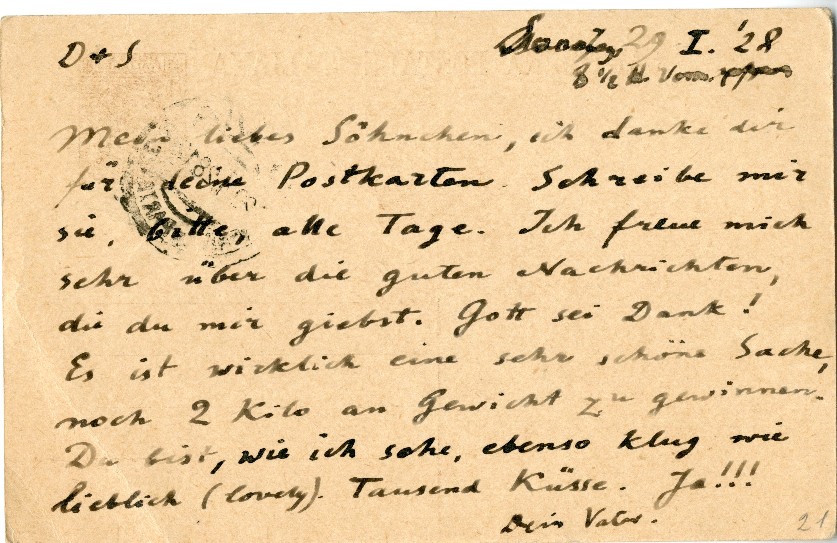 D + S
Sonntag 29 I. '28
8 1/2 H. Vorm.
Mein liebes Söhnchen, ich danke dir
für deine Postkarten. Schreibe mir
sie, bitte, alle Tage. Ich freue mich
sehr über die guten Nachrichten,
die du mir giebst. Gott sei Dank!
Es ist wirklich eine sehr schöne Sache,
noch 2 Kilo an Gewicht zu gewinnen.
Du bist, wie ich sehe, ebenso klug wie
lieblich (lovely). Tausend Küsse. Ja!!!
Dein Vater.
21